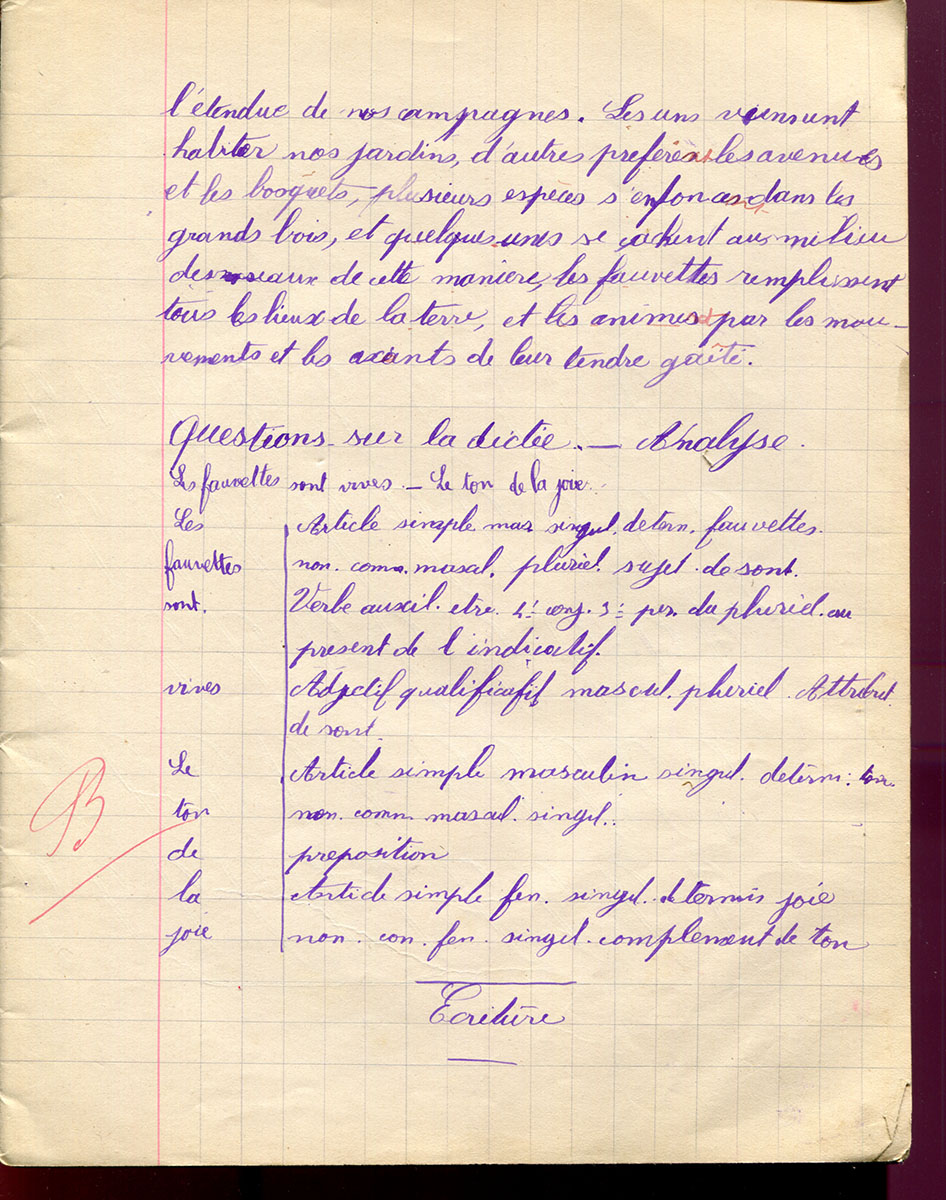 l'étendue de nos campagnes. Les uns viennent
habiter nos jardins, d'autres préfèrent les avenues
et les bosquets, plusieurs espèces s'enfoncent dans les
grands bois, et quelques unes se cachent au milieu
des roseaux de cette manière, les fauvettes remplissent
tous les lieux de la terre, et les animent par les mou-
vements et les accents de leur tendre gaîté.
Questions sur la dictée. — Analyse.
Les fauvettes sont vives. — Le ton de la joie.
Les Article simple mas. singul. déterm. fauvettes.
fauvettes non. comm. mascul. pluriel. sujet de sont.
sont. Verbe auxil. etre. 4e conj. 3e per. du pluriel. au
present de l'indicatif.
vives Adjectif qualificatif mascul. pluriel. Attribut.
de sont.
Le Article simple masculin singul. détérm. ton.
ton non. comm. mascul. singul.
de preposition
la Article simple fen. singul. determis joie
joie non. con. fen. singul. complement de ton
Ecriture
B